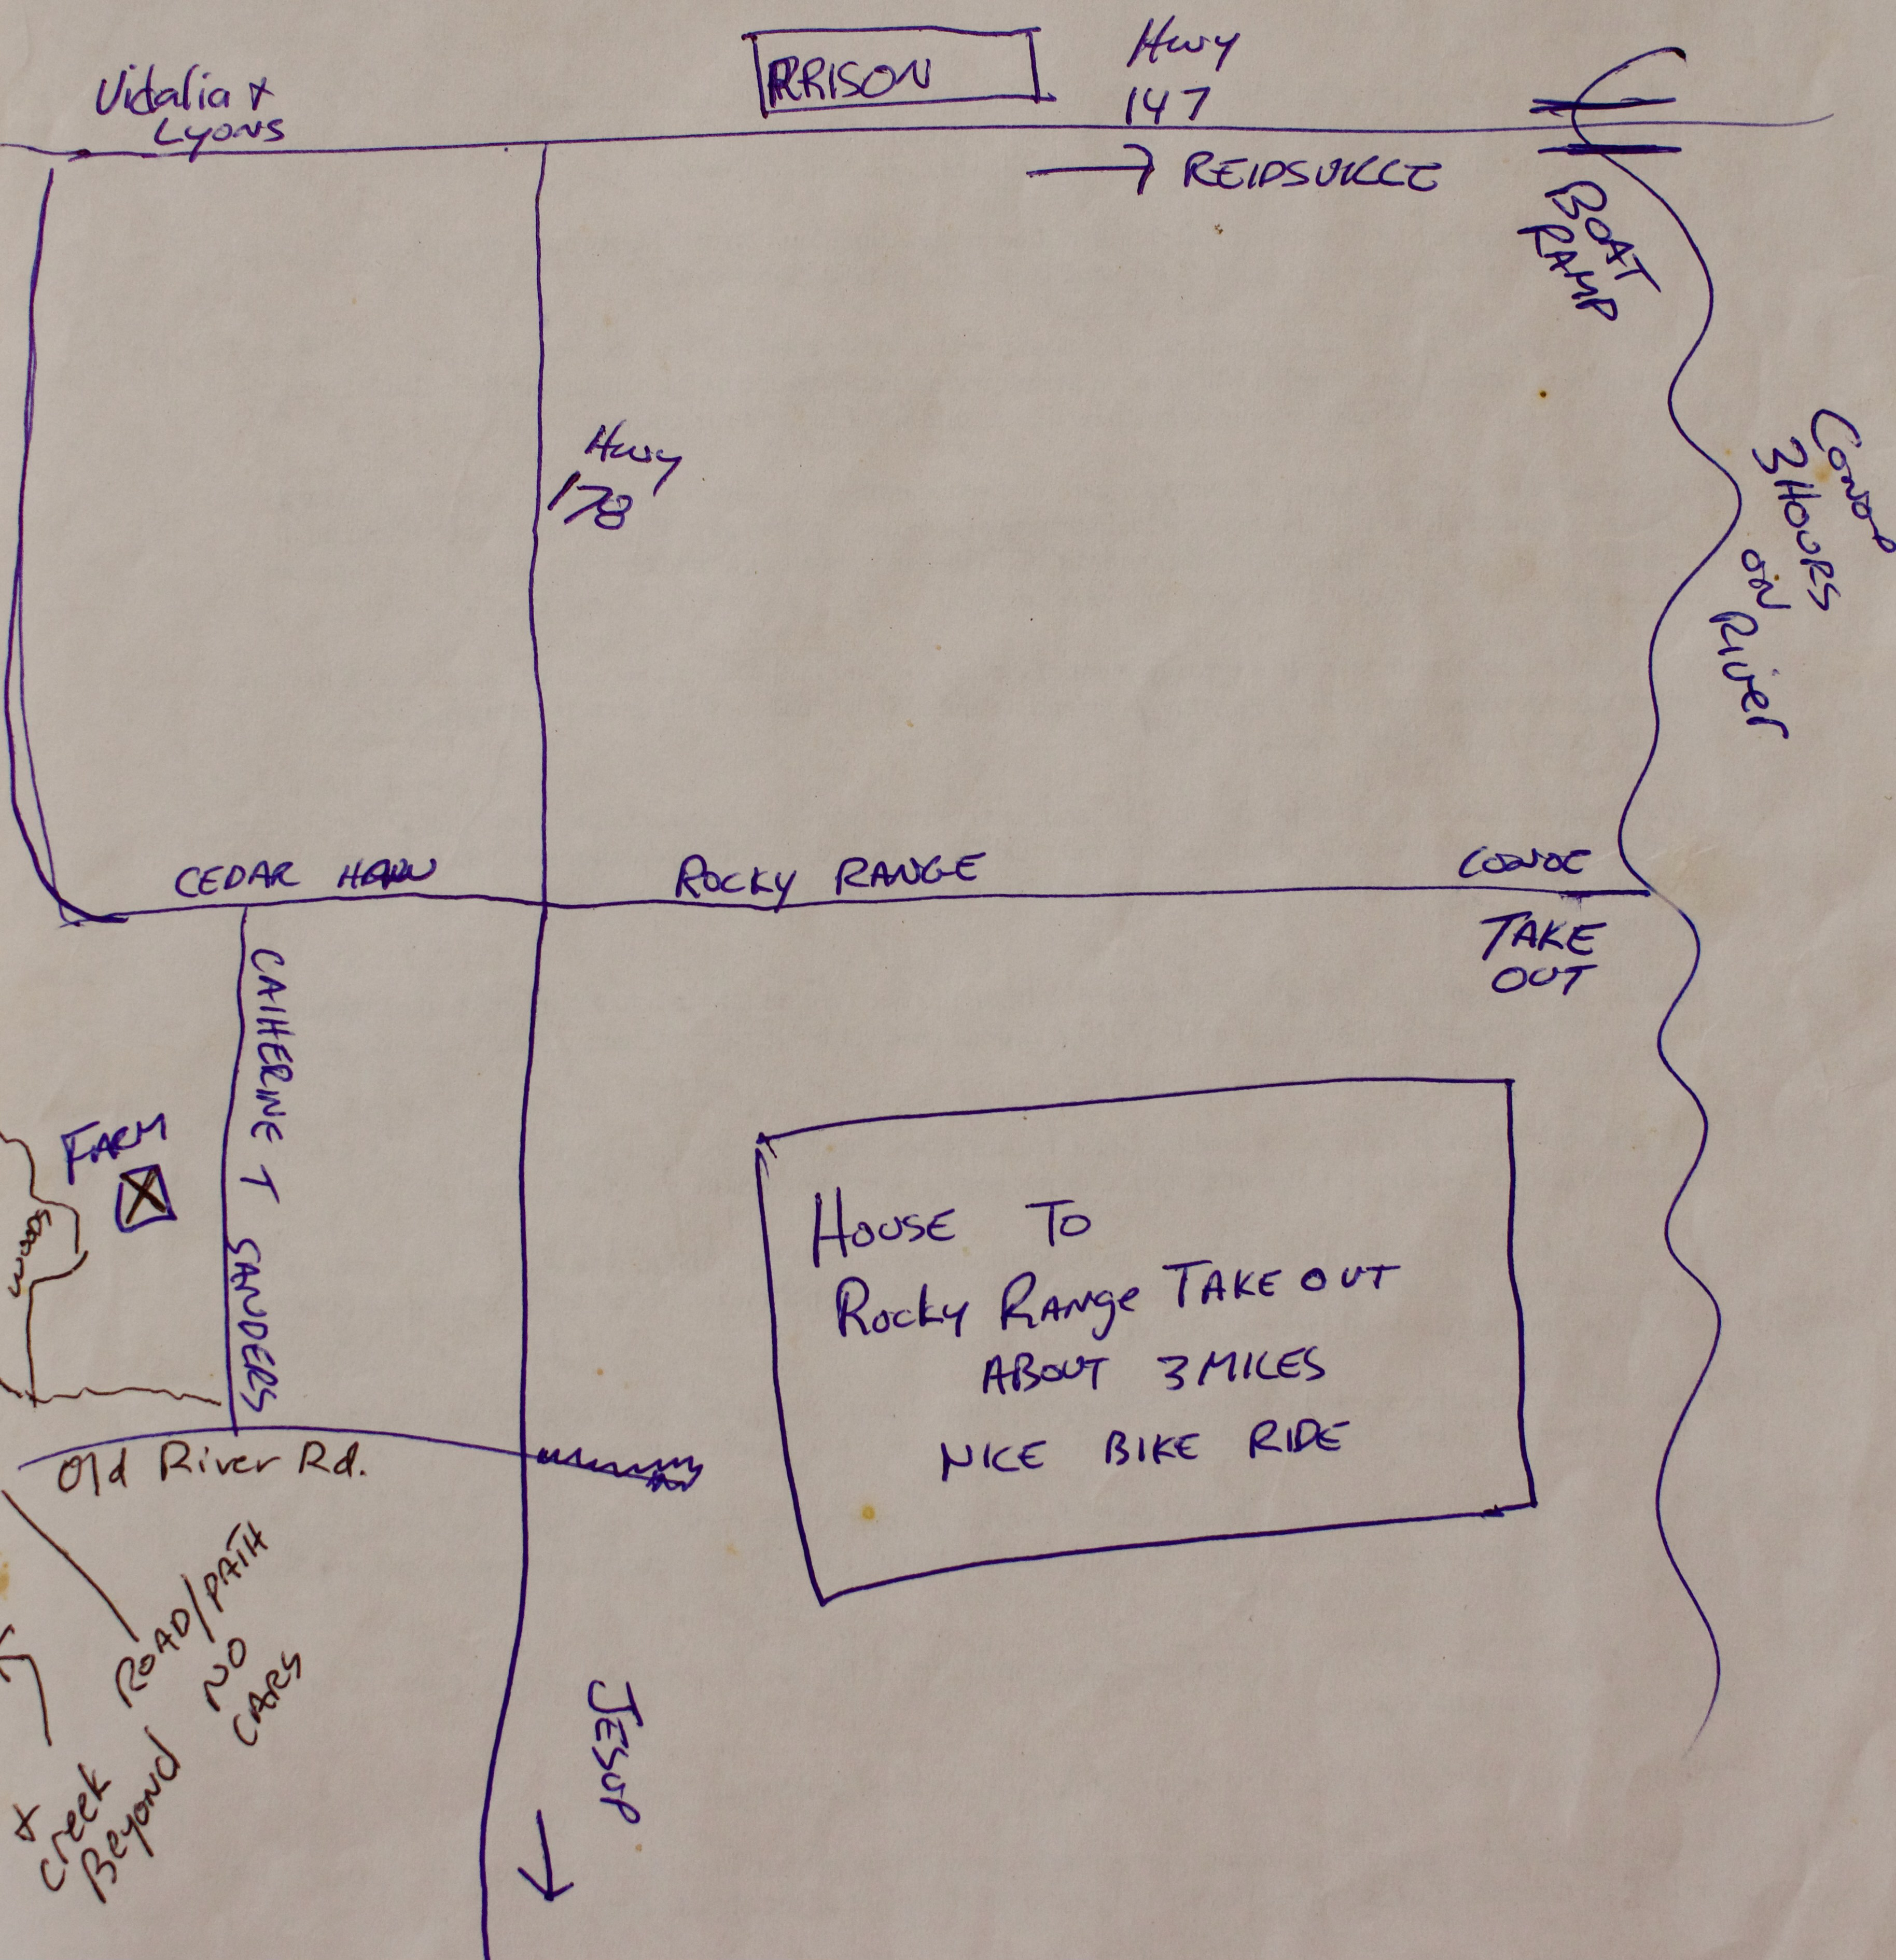 Vidalia +
Lyons
PRISON
Hwy
147
→ REIDSVILLE
BOAT
RAMP
Hwy
178
Conoe
3 HOURS
ON
River
CEDAR
ROCKY RANGE
CONOE
TAKE
OUT
CATHERINE T SANDERS
FARM
X
WOODS
HOUSE TO
ROCKY RANGE TAKE OUT
ABOUT 3 MILES
NICE BIKE RIDE
Old River Rd.
ROAD/PATH
NO
CARS
+
Creek
Beyond
JESUP